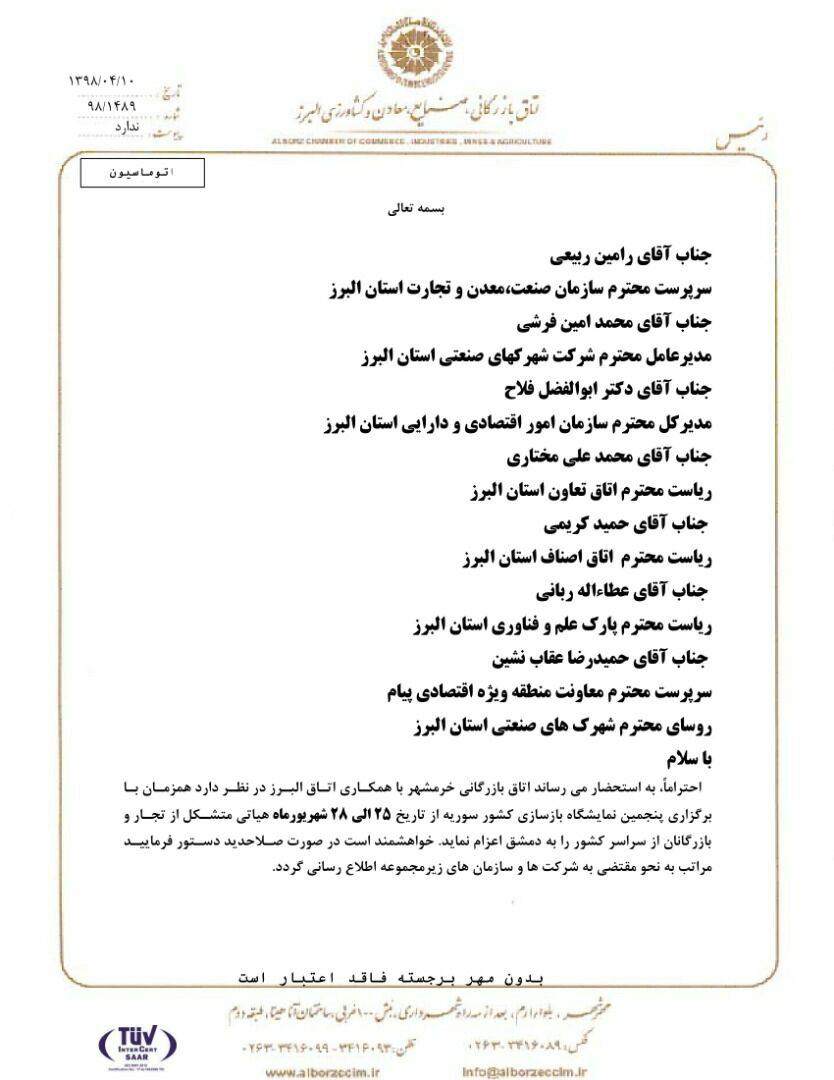 ۱۳۹۸/۰۴/۱۰
تاریخ:
۹۸/۱۴۸۹
شماره:
ندارد
پیوست:
اتاق بازرگانی، صنایع، معادن و کشاورزی البرز
ALBORZ CHAMBER OF COMMERCE , INDUSTRIES , MINES & AGRICULTURE
رئیس
اتوماسیون
بسمه تعالی
جناب آقای رامین ربیعی
سرپرست محترم سازمان صنعت،معدن و تجارت استان البرز
جناب آقای محمد امین فرشی
مدیرعامل محترم شرکت شهرکهای صنعتی استان البرز
جناب آقای دکتر ابوالفضل فلاح
مدیرکل محترم سازمان امور اقتصادی و دارایی استان البرز
جناب آقای محمد علی مختاری
ریاست محترم اتاق تعاون استان البرز
جناب آقای حمید کریمی
ریاست محترم اتاق اصناف استان البرز
جناب آقای عطاءاله ربانی
ریاست محترم پارک علم و فناوری استان البرز
جناب آقای حمیدرضا عقاب نشین
سرپرست محترم معاونت منطقه ویژه اقتصادی پیام
روسای محترم شهرک های صنعتی استان البرز
با سلام
احتراماً، به استحضار می رساند اتاق بازرگانی خرمشهر با همکاری اتاق البرز در نظر دارد همزمان با
برگزاری پنجمین نمایشگاه بازسازی کشور سوریه از تاریخ ۲۵ الی ۲۸ شهریورماه هیاتی متشکل از تجار و
بازرگانان از سراسر کشور را به دمشق اعزام نماید. خواهشمند است در صورت صلاحدید دستور فرمایید
مراتب به نحو مقتضی به شرکت ها و سازمان های زیرمجموعه اطلاع رسانی گردد.
بدون مهر برجسته فاقد اعتبار است
مهرشهر، بلوار ارم، بعد از سه راه شهرداری، نبش ۱۰۰ غربی، ساختمان آناهیتا، طبقه دوم
تلفن: ۳۴۱۶۰۹۳-۰۲۶۳-۳۴۱۶۰۹۹ فکس: ۰۲۶۳-۳۴۱۶۰۸۹
www.alborzccim.ir Info@alborzccim.ir
TÜV
INTERCERT
SAAR